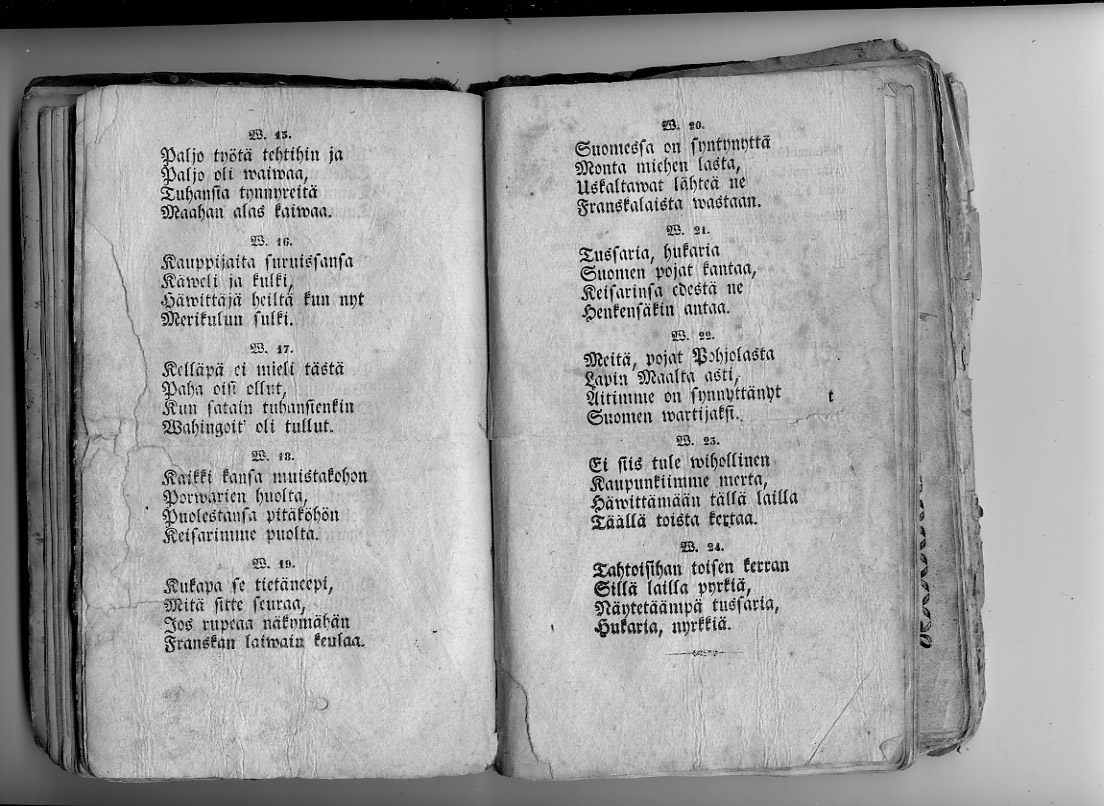 W. 15.
Paljo työtä tehtihin ja
Paljo oli waiwaa,
Tuhansia tynnyreitä
Maahan alas kaiwaa.
W. 16.
Kauppijaita suruissansa
Käweli ja kulki,
Häwittäjä heiltä kun nyt
Merikulun sulki.
W. 17.
Kelläpä ei mieli tästä
Paha oisi ollut,
Kun satain tuhansienkin
Wahingoit' oli tullut.
W. 18.
Kaikki kansa muistakohon
Porwarien huolta,
Puolestansa pitäköhön
Keisarimme puolta.
W. 19.
Kukapa se tietäneepi,
Mitä sitte seuraa,
Jos rupeaa näkymähän
Franskan laiwain keulaa.
W. 20.
Suomessa on syntynyttä
Monta miehen lasta,
Uskaltawat lähteä ne
Franskalaista wastaan.
W. 21.
Tussaria, hukaria
Suomen pojat kantaa,
Keisarinsa edestä ne
Henkensäkin antaa.
W. 22.
Meitä, pojat Pohjolasta
Lapin Maalta asti,
Äitimme on synnyttänyt
Suomen wartijaksi.
W. 23.
Ei siis tule wihollinen
Kaupunkiimme merta,
Häwittämään tällä lailla
Täällä toista kertaa.
W. 24.
Tahtoisihan toisen kerran
Sillä lailla pyrkiä,
Näytetäämpä tussaria,
Hukaria, nyrkkiä.